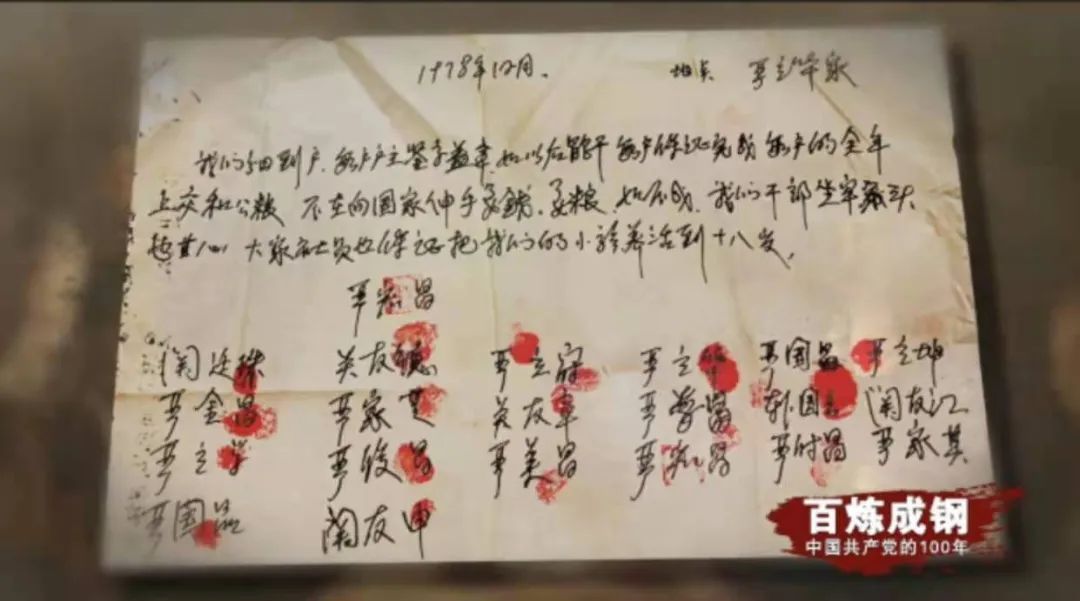 1978年12月. 地点 严立华家
我们分田到户,每户户主签字盖章,如以后能干,每户保证完成每户的全年
上交和公粮 不在向国家伸手要钱、要粮,如不成,我们干部坐牢杀头
也甘心 大家社员也保证把我们的小孩养活到十八岁。
严宏昌
关廷珠 关友德 严立符 严立华 严国昌 严立坤
严金昌 严家芝 关友章 严学昌 韩国云 关友江
严立学 严俊昌 严美昌 严宏昌 严付昌 严家其
严国品 关友申
百炼成钢
中国共产党的100年